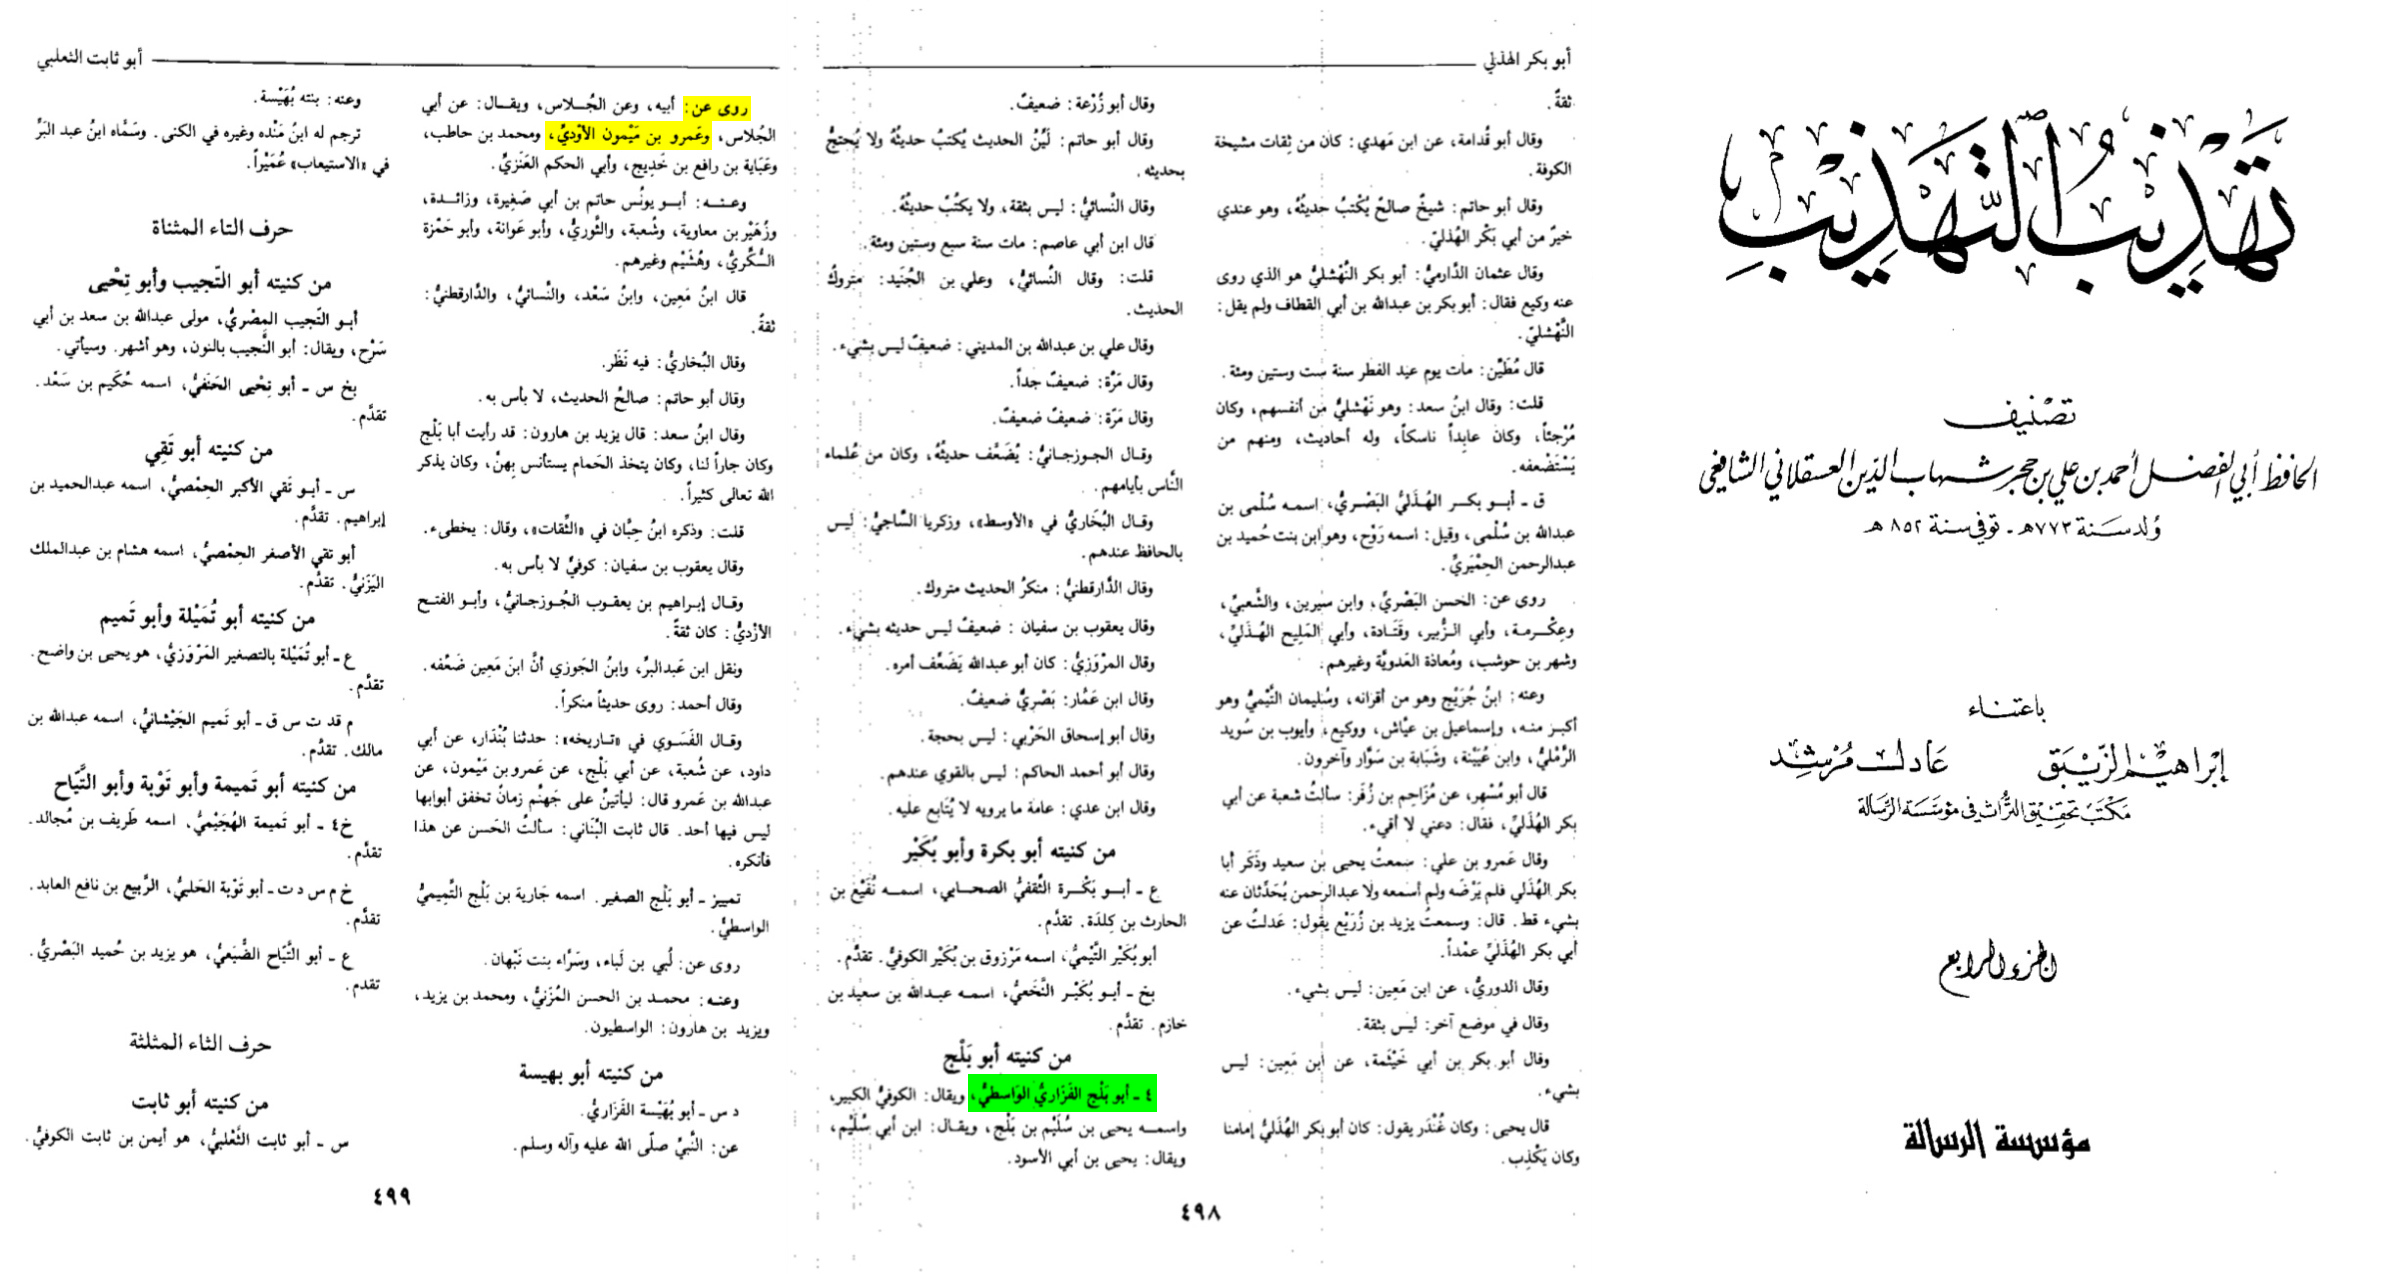 تهذيب التهذيب
تصنيف
الحافظ أبي الفضل أحمد بن علي بن حجر شهاب الدين العسقلاني الشافعي
وُلد سَنة ٧٧٣هـ - توفي سنة ٨٥٢ هـ
باعتناء
إبراهيم الزيبق عادل مرشد
مكتب تحقيق التراث في مؤسسة الرسالة
الجزء الرابع
مؤسسة الرسالة
أبو بكر الهذلي
ثقةٌ.
وقال أبو قُدامة، عن ابن مَهدي: كان من ثِقات مشيخة
الكوفة.
وقال أبو حاتم: شيخٌ صالحٌ يُكْتبُ حديثُهُ، وهو عندي
خيرٌ من أبي بَكْر الهُذليّ.
وقال عثمان الدَّارميُّ: أبو بكر النَّهْشليُّ هو الذي روى
عنه وكيع فقال: أبو بكر بن عبدالله بن أبي القطاف ولم يقل:
النَّهْشليّ.
قال مُطَيِّن: مات يوم عيد الفطر سنة ست وستين ومئة.
قلت: وقال ابنُ سعد: وهو نَهْشليٌّ من أنفسهم، وكان
مُرْجئاً، وكان عابِداً ناسكاً، وله أحاديث، ومنهم من
يَسْتَضْعفه.
ق ـ أبـو بكـر الهُـذَليُّ البَصْـريُّ، اسمـه سُلْمى بن
عبدالله بن سُلْمى، وقيل: اسمه رَوْح، وهو ابن بنت حُميد بن
عبدالرحمن الحِمْيَريِّ.
روى عن: الحسن البَصْريِّ، وابن سيرين، والشَّعبيِّ،
وعِكْـرمـة، وأبي الـزُّبير، وقَتَـادة، وأبي المَلِيح الهُـذَليِّ،
وشهر بن حوشب، ومُعاذة العَدويَّة وغيرهم.
وعنه: ابنُ جُرَيْج وهو من أقرانه، وسُليمان التَّيْميُّ وهو
أكبـر منـه، وإسماعيل بن عيَّاش، ووكيع، وأيوب بن سُويد
الرَّمْليُّ، وابن عُيَيْنة، وشَبَابة بن سَوَّار وآخرون.
قال أبو مُسْهِر، عن مُزَاحِم بن زُفَر: سألتُ شعبة عن أبي
بكر الهُذَليِّ، فقال: دعني لا أقيء.
وقال عَمرو بن علي: سمعتُ يحيى بن سعيد وذَكَر أبا
بكر الهُذَلي فلم يَرْضَه ولم أسمعه ولا عبدالرحمن يُحَدِّثان عنه
بشيء قط. قال: وسمعتُ يزيد بن زُرَيْع يقول: عَدلتُ عن
أبي بكر الهُذَليِّ عمْداً.
وقال الدوريُّ، عن ابن مَعِين: ليس بشيء.
وقال في موضع آخر: ليس بثقة.
وقال أبو بكر بن أبي خَيْثمة، عن ابن مَعِين: ليس
بشيء.
قال يحيى: وكان غُنْدَر يقول: كان أبو بكر الهُذَليُّ إمامنا
وكان يَكْذِب.
وقال أبو زُرْعة: ضعيفٌ.
وقال أبو حاتم: لَيِّنُ الحديث يُكتبُ حديثُهُ ولا يُحتجُّ
بحديثه.
وقال النَّسائيُّ: ليس بثقة، ولا يكتُبُ حديثُهُ.
قال ابن أبي عاصم: مات سنة سبع وستين ومئة.
قلت: وقال النَّسائيُّ، وعلي بن الجُنَيد: متروكُ
الحديث.
وقال علي بن عبدالله بن المديني: ضعيفٌ ليس بشيء.
وقال مَرَّة: ضعيفٌ جداً.
وقال مَرَّة: ضعيفٌ ضعيفٌ.
وقـال الجـوزجـانيُّ: يُضَعَّف حديثُهُ، وكان من عُلماء
النَّاس بأيامهم.
وقـال البُخَاريُّ في «الأوسط»، وزكريا السَّاجيُّ: ليس
بالحافظ عندهم.
وقال الدَّارقطنيُّ: منكرُ الحديث متروك.
وقال يعقوب بن سفيان: ضعيفٌ ليس حديثه بشيء.
وقال المرْوَزيُّ: كان أبو عبدالله يَضَعِّف أمره.
وقال ابن عَمَّار: بَصْريٌّ ضعيفٌ.
وقال أبو إسحاق الحَرْبي: ليس بحجة.
وقال أبو أحمد الحاكم: ليس بالقوي عندهم.
وقال ابن عدي: عامة ما يرويه لا يُتَابع عليه.
من كنيته أبو بكرة وأبو بُكَيْر
ع ـ أبـو بَكْـرة الثَّقفيُّ الصحـابي، اسمـه نُفَيْع بن
الحارث بن كِلدَة. تقدَّم.
أبو بُكَيْر التَّيْميُّ، اسمه مَرْزوق بن بُكَيْر الكوفيُّ. تقدَّم.
بخ ـ أبـو بُكَيْـر النَّخَعيُّ، اسمـه عبـدالله بن سعيد بن
خازم. تقدَّم.
من كنيته أبو بَلْج
٤ ـ أبو بَلْج الفَزَاريُّ الوَاسطيُّ، ويقال: الكوفيُّ الكبير،
واسمـه يحيى بن سُلَيْم بن بَلْج، ويقـال: ابن أبي سُلَيْم،
ويقال: يحيى بن أبي الأسود.
٤٩٨
أبو ثابت الثعلبي
روى عن: أبيه، وعن الجُـلاس، ويقـال: عن أبي
الجُلاس، وعَمرو بن مَيْمون الأوْديِّ، ومحمد بن حاطب،
وعَبَاية بن رافع بن خَدِيج، وأبي الحكم العَنَزيِّ.
وعنـه: أبـو يونُس حاتم بن أبي صَغِيرة، وزائـدة،
وزُهَيْر بن معاوية، وشُعبة، والثَّوريُّ، وأبو عَوانة، وأبو حَمْزة
السُّكَّريُّ، وهُشَيْم وغيرهم.
قال ابنُ مَعِين، وابنُ سَعْد، والنَّسائيُّ، والدَّارقطنيُّ:
ثقةٌ.
وقال البُخاريُّ: فيه نَظَر.
وقال أبو حاتم: صالحُ الحديث، لا بأس به.
وقال ابنُ سعد: قال يزيد بن هارون: قد رأيت أبا بَلْج
وكان جاراً لنا، وكان يتخذ الحَمام يستأنس بِهنَّ، وكان يذكر
الله تعالى كثيراً.
قلت: وذكره ابنُ حِبَّان في «الثِّقات»، وقال: يخطىء.
وقال يعقوب بن سفيان: كوفيٌّ لا بأس به.
وقـال إبـراهيم بن يعقـوب الجُـوزجـانيُّ، وأبـو الفتـح
الأزْديُّ: كان ثقةً.
ونقل ابن عَبدالبرِّ، وابنُ الجَوزي أنَّ ابنَ مَعِين ضَعَّفه.
وقال أحمد: روى حديثاً منكراً.
وقـال الفَسَـوي في «تـاريخه»: حدثنا بُنْدَار، عن أبي
داود، عن شُعبة، عن أبي بَلْج، عن عَمرو بن مَيْمون، عن
عبدالله بن عَمرو قال: ليأتينَّ على جَهنَّم زمانٌ تخفق أبوابها
ليس فيها أحد. قال ثابت البُنَاني: سألتُ الحَسن عن هذا
فأنكره.
تمييز ـ أبو بَلْج الصغير. اسمه جَارية بن بَلْج التَّميميُّ
الواسطيُّ.
روى عن: لُبي بن لَباء، وسَرَّاء بنت نَبْهان.
وعنـه: محمـد بن الحسن المُزَنيُّ، ومحمد بن يزيد،
ويزيد بن هارون: الواسطيون.
من كنيته أبو بهيسة
د س ـ أبو بُهَيْسة الفَزَاريُّ.
عن: النَّبيِّ صلّى الله عليه وآله وسلم.
وعنه: بنته بُهَيْسة.
ترجم له ابنُ مَنْده وغيره في الكنى. وسَمَّاه ابنُ عبد البَرِّ
في «الاستيعاب» عُمَيْراً.
حرف التاء المثناة
من كنيته أبو التَّجيب وأبو تِحْيى
أبـو التَّجيب المِصْريُّ، مولى عبدالله بن سعد بن أبي
سَرْح، ويقال: أبو النَّجيب بالنون، وهو أشهر. وسيأتي.
بخ س ـ أبو تِحْيى الحَنَفيُّ، اسمه حُكَيم بن سَعْد.
تقدَّم.
من كنيته أبو تَقِي
س ـ أبـو تَقي الأكبر الحِمْصيُّ، اسمه عبدالحميد بن
إبراهيم. تقدَّم.
أبو تقي الأصغر الحِمْصيُّ، اسمه هشام بن عبدالملك
اليَزَنيُّ. تقدَّم.
من كنيته أبو تُمَيْلة وأبو تَميم
ع ـ أبو تُمَيْلة بالتصغير المَرْوَزيُّ، هو يحيى بن واضح.
تقدَّم.
م قد ت س ق ـ أبو تَميم الجَيْشانيُّ، اسمه عبدالله بن
مالك. تقدَّم.
من كنيته أبو تَميمة وأبو تَوْبة وأبو التَّيَّاح
خ٤ ـ أبو تَميمة الهُجَيْميُّ، اسمه طَريف بن مُجالد.
تقدَّم.
خ م س د ت ـ أبو تَوْبة الحَلبيُّ، الرَّبيع بن نافع العابد.
تقدَّم.
ع ـ أبو التَّيَّاح الضُّبَعيُّ، هو يزيد بن حُميد البَصْريُّ.
تقدم.
حرف الثاء المثلثة
من كنيته أبو ثابت
س ـ أبو ثابت الثَّعْلبيُّ، هو أيمن بن ثابت الكوفيُّ.
٤٩٩